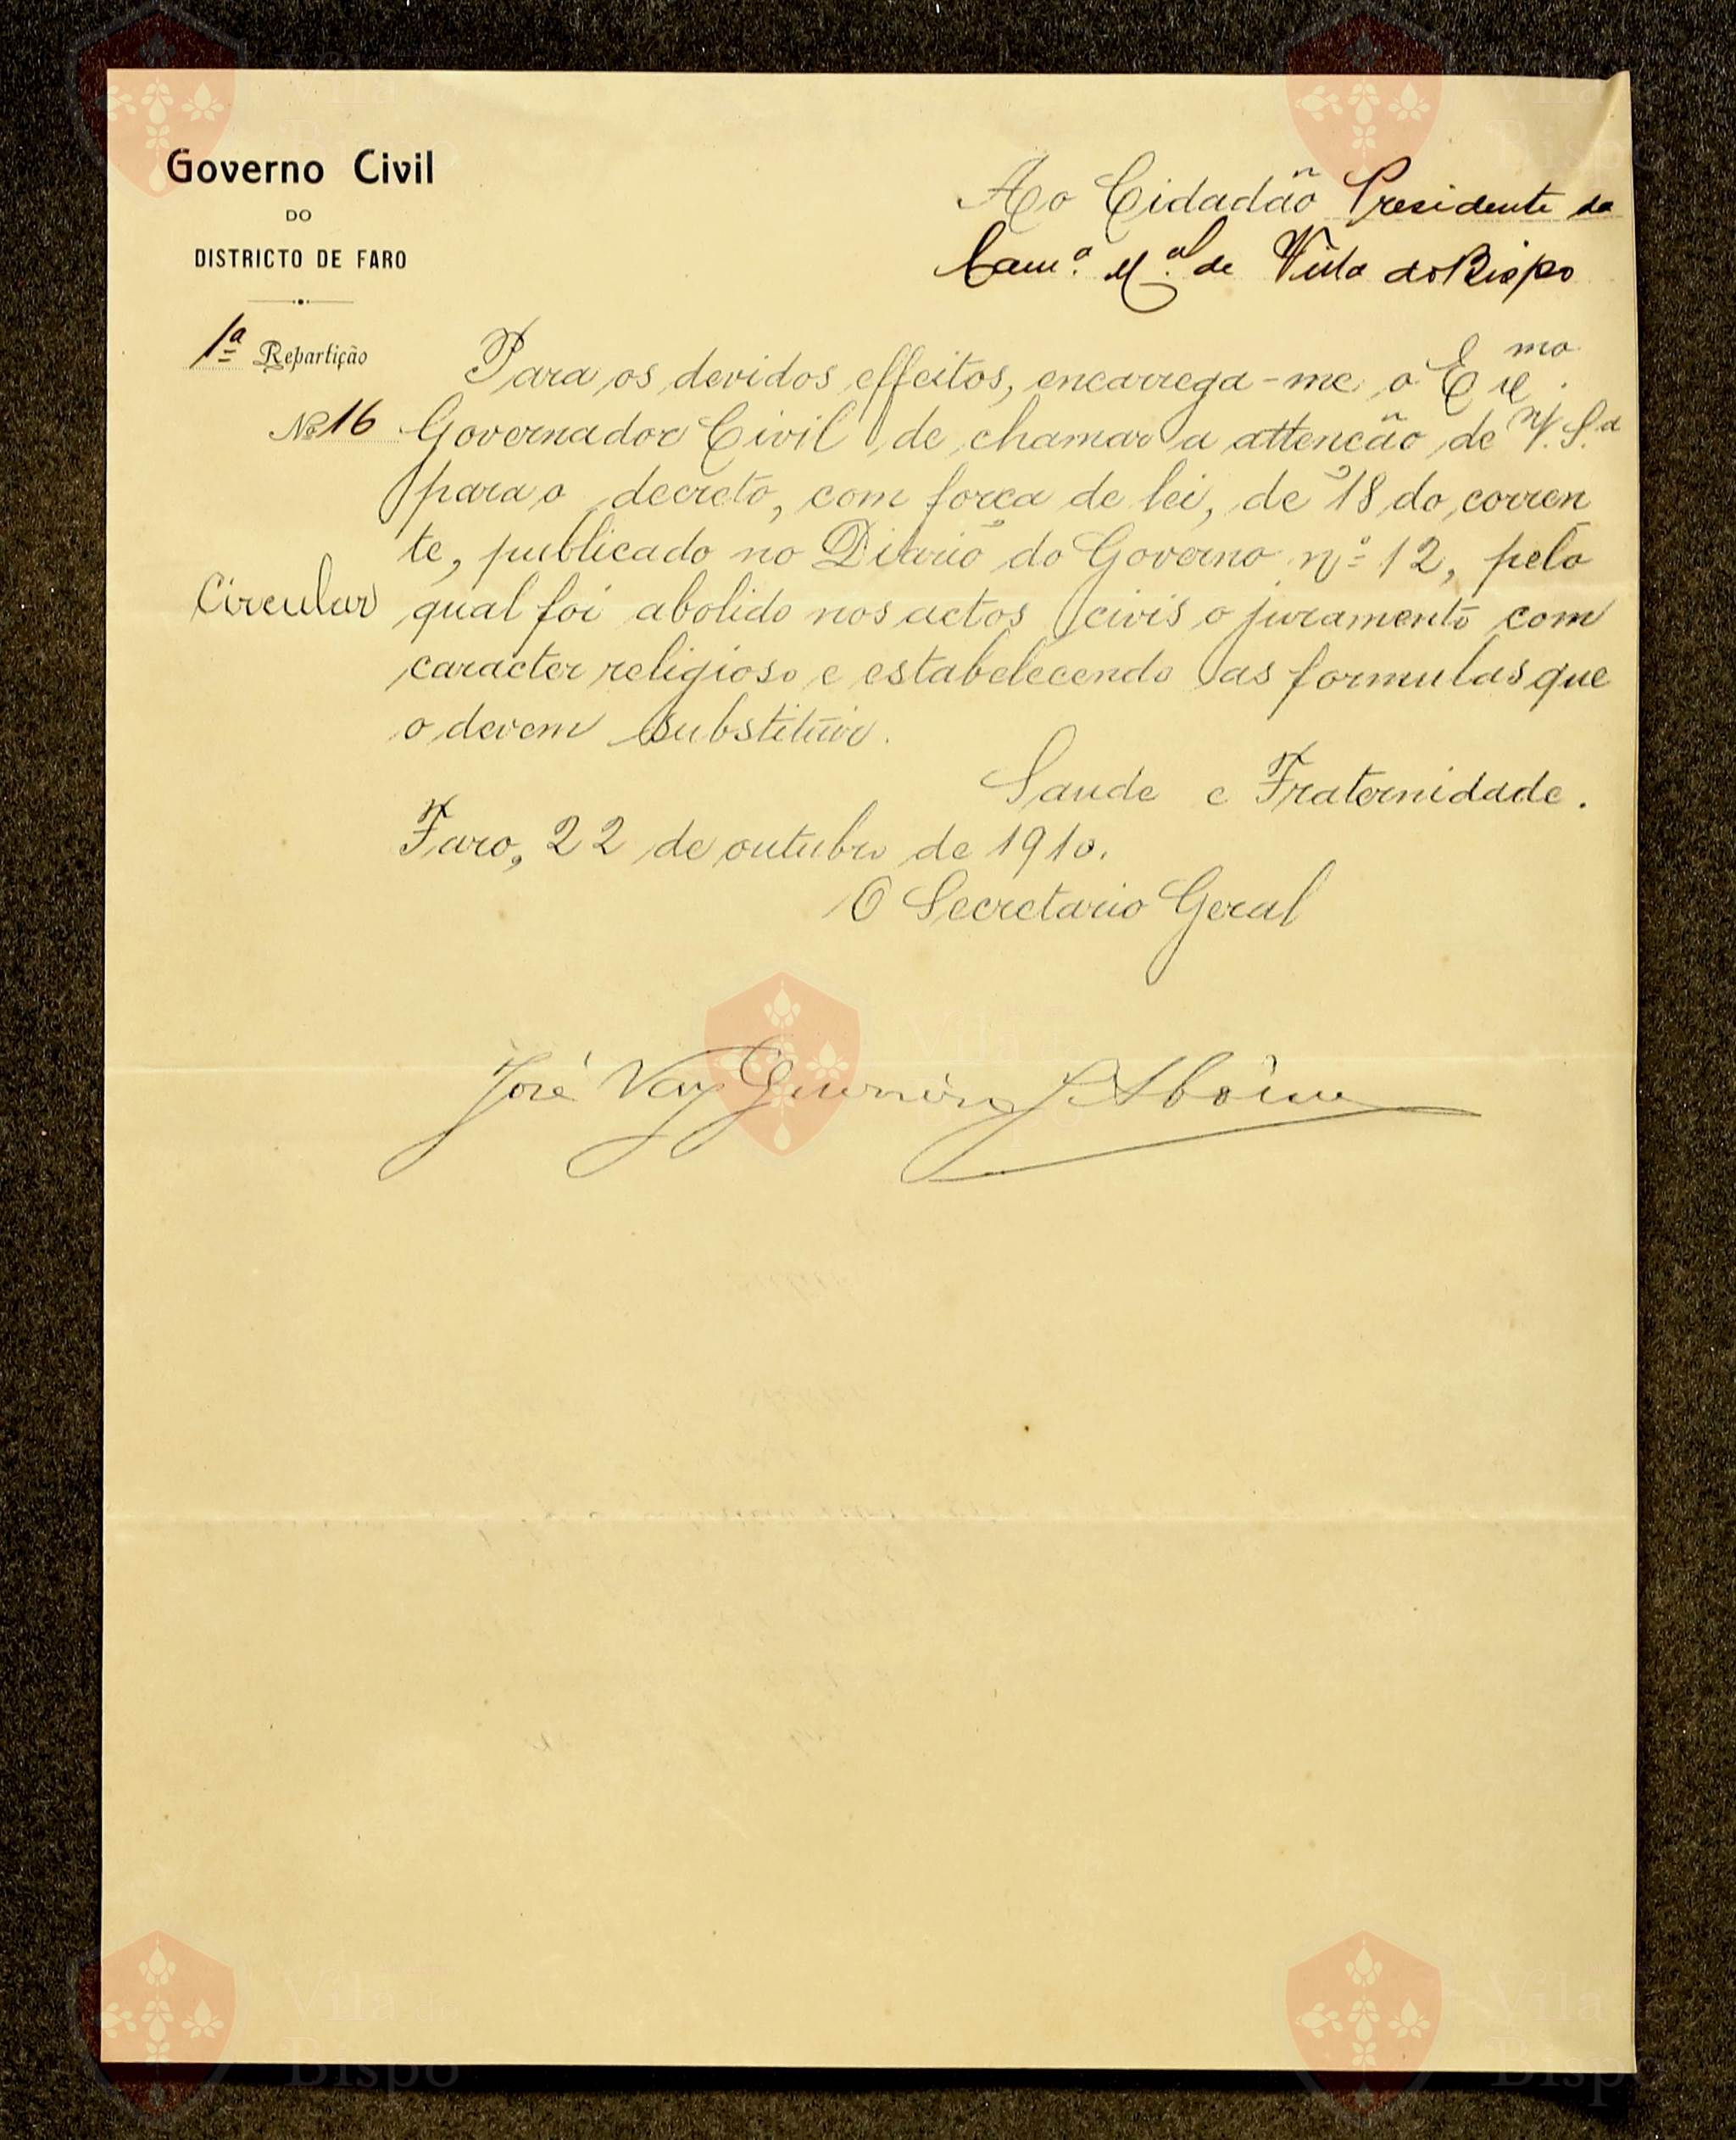 Governo Civil
DO
DISTRICTO DE FARO
1ª Repartição
Nº 16
Circular
Ao Cidadão Presidente da
Camª. M.al de Villa do Bispo
Para os devidos effeitos, encarrega-me o Exmo.
Governador Civil de chamar a attenção de V. S.a
para o decreto, com força de lei, de 18 do corren
te, publicado no Diario do Governo nº 12, pelo
qual foi abolido nos actos civis o juramento com
caracter religioso e estabelecendo as formulas que
o devem substituir.
Saude e Fraternidade.
Faro, 22 de outubro de 1910.
O Secretario Geral
José Vaz Guerreiro J. Aboim
Vila do
Bispo